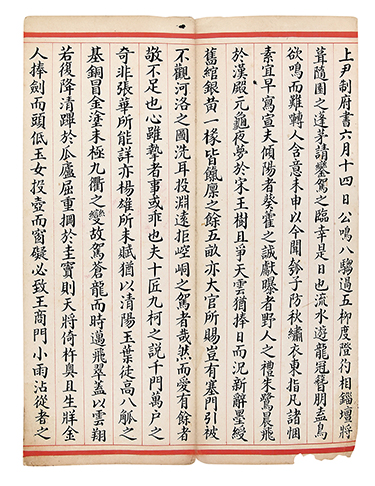 上尹制府書六月十四日公鳴八騶過五柳度澄仞相錙壇將
葺隨園之蓬茅請鑾駕之臨幸是日也流水遊龍冠簪朋盍鳥
欲鳴而難轉人含意未申以今聞鈴子防秋繡衣東指凡諸悃
素宜早寫宣夫傾陽者葵藿之誠獻曝者野人之禮朱鷺晨飛
於漢殿元龜夜夢於宋王樹且爭天雲猶捧日而況新辭墨綬
舊綰銀黃一椽皆餼廩之餘五畝亦大官所賜豈有塞門引被
不觀河洛之圖洗耳投淵遠拒崆峒之駕者哉然而愛有餘者
敬不足也心雖摯者事或乖也夫十匠九柯之説千門萬戶之
奇非張華所能詳亦楊雄所未賦猶以清陽玉葉徒高八觚之
基銅冒金塗未極九衢之變故駕蒼龍而時邁飛翠蓋以雲翔
若復降清蹕於瓜廬屈重於圭竇則天將倚杵輿且生牂金
人捧劍而頭低玉女投壺而窗礙必致王商門小雨沾從者之